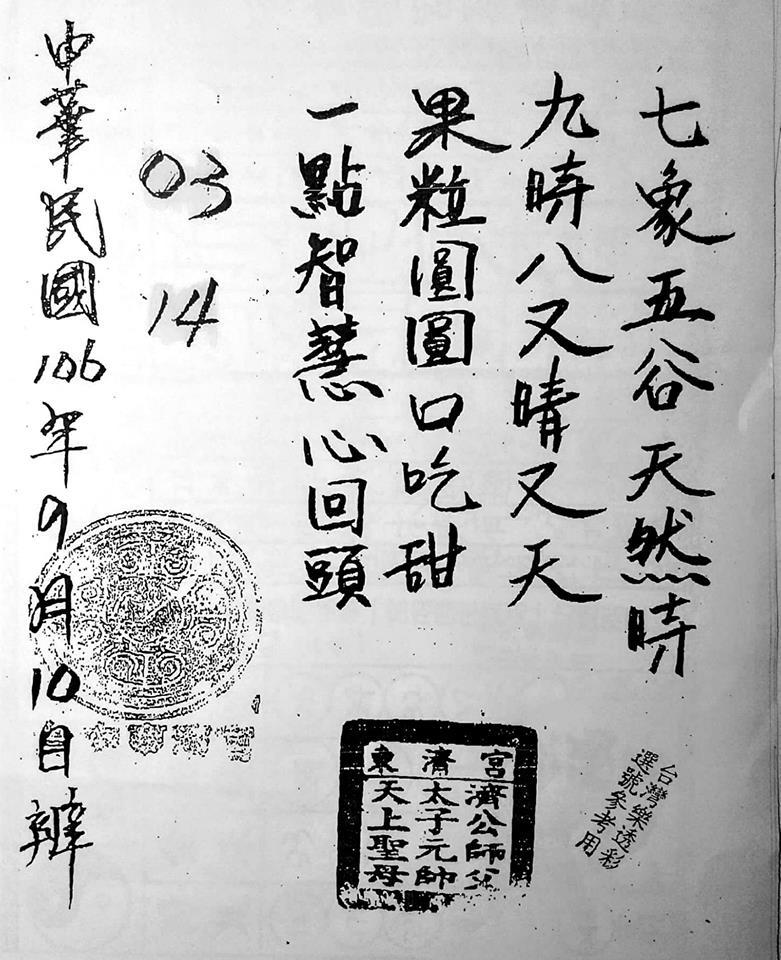 七象五谷天然時
九時八又晴又天
果粒圓圓口吃甜
一點智慧心回頭
03
14
中華民國106年9月10日辦
東濟宮
濟公師父
太子元帥
天上聖母
台灣樂透彩
選號參考用